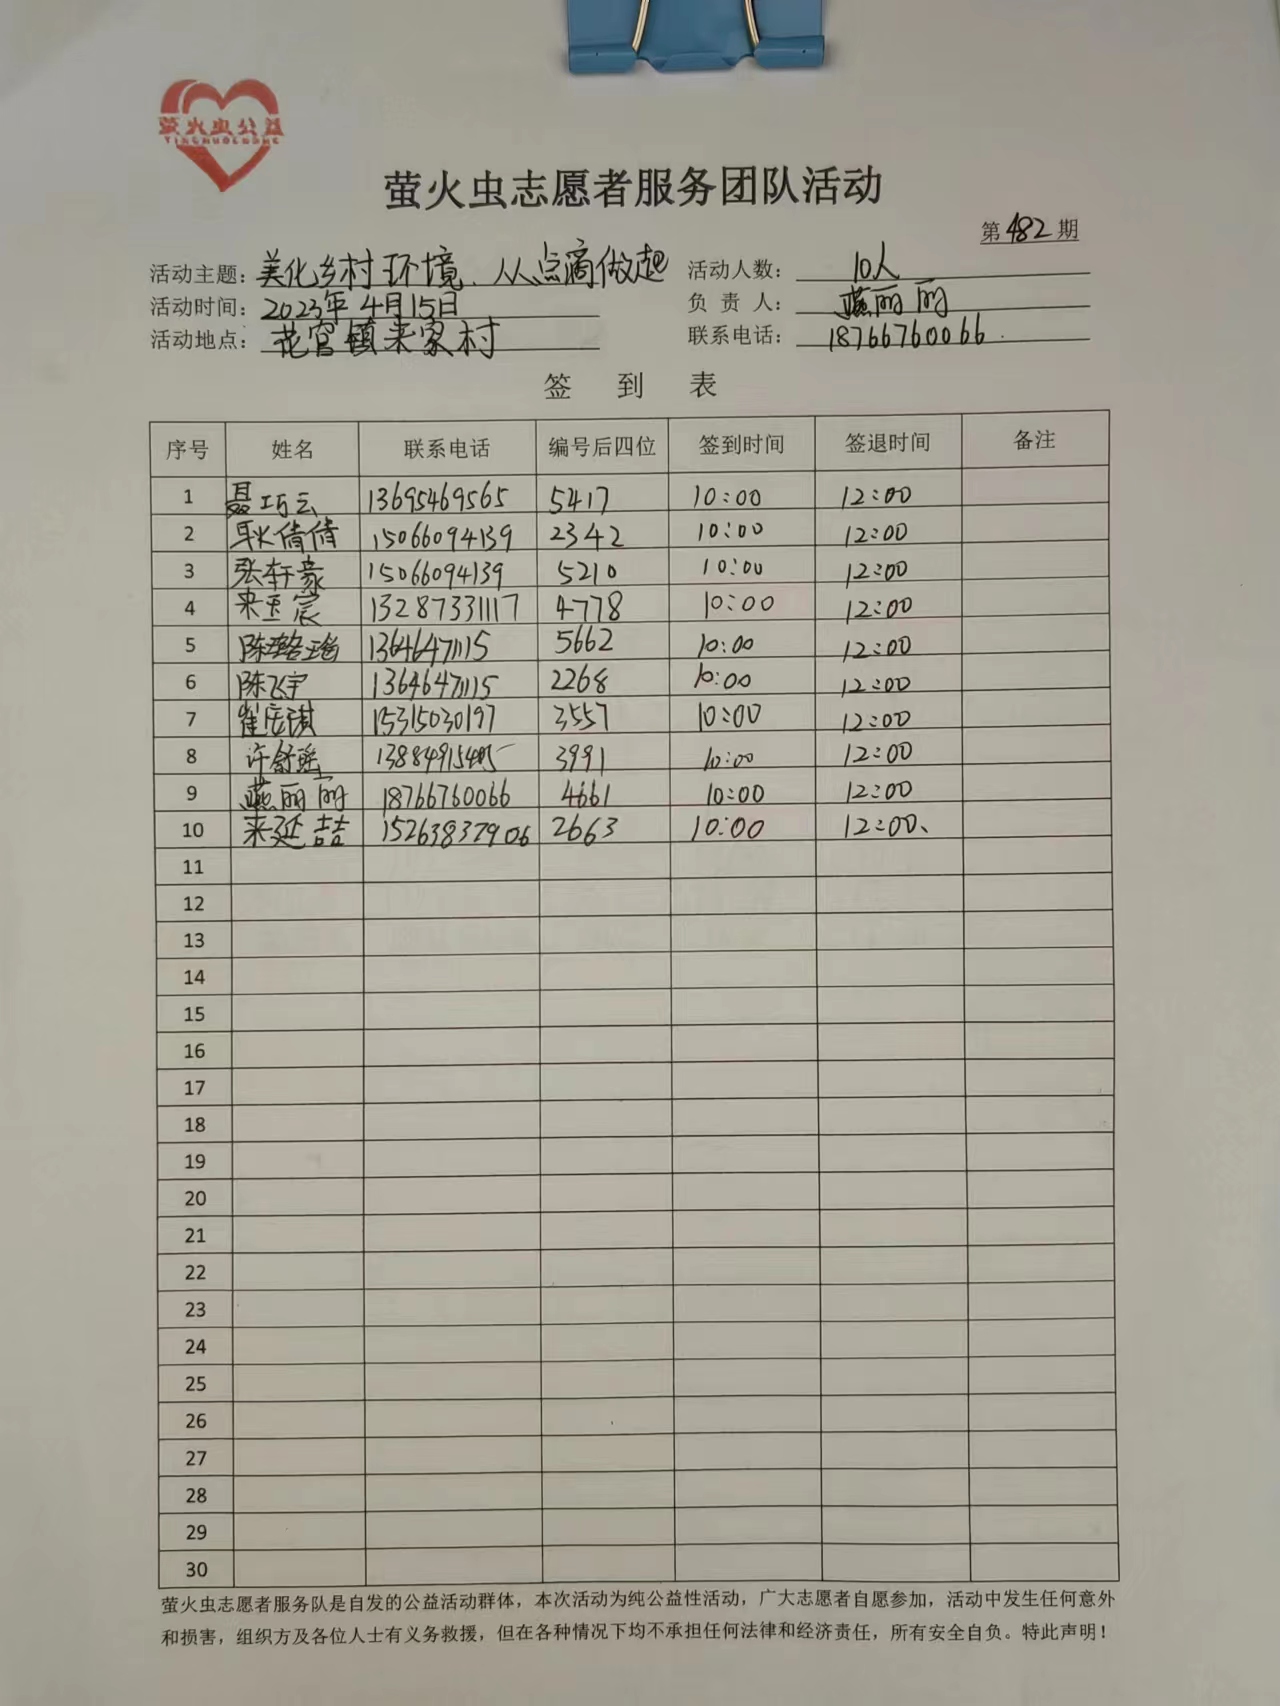 萤火虫公益
YINGHUOCHONG
萤火虫志愿者服务团队活动
第482期
活动主题：美化乡村环境、从点滴做起 活动人数：10人
活动时间：2023年4月15日 负责人：燕丽丽
活动地点：花官镇来家村 联系电话：18766760066
签到表
序号 姓名 联系电话 编号后四位 签到时间 签退时间 备注
1 聂巧云 13695469565 5417 10:00 12:00
2 耿倩倩 15066094139 2342 10:00 12:00
3 张轩豪 15066094139 5210 10:00 12:00
4 来玉宸 13287331117 4778 10:00 12:00
5 陈璐瑶 13646471115 5662 10:00 12:00
6 陈飞宇 13646471115 2268 10:00 12:00
7 崔度琪 15315030197 3557 10:00 12:00
8 许舒瑶 3991 10:00 12:00
9 燕丽丽 18766760066 4661 10:00 12:00
10 来延喆 15263837906 2663 10:00 12:00、
11
12
13
14
15
16
17
18
19
20
21
22
23
24
25
26
27
28
29
30
萤火虫志愿者服务队是自发的公益活动群体，本次活动为纯公益性活动，广大志愿者自愿参加，活动中发生任何意外
和损害，组织方及各位人士有义务救援，但在各种情况下均不承担任何法律和经济责任，所有安全自负。特此声明！